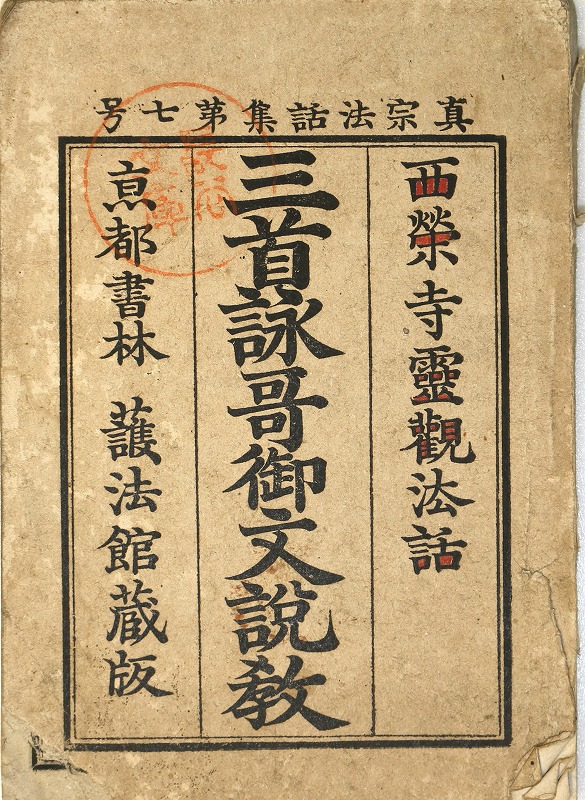 真宗法話集第七号
西榮寺靈觀法話
三首詠哥御文説教
京都書林 護法館蔵版